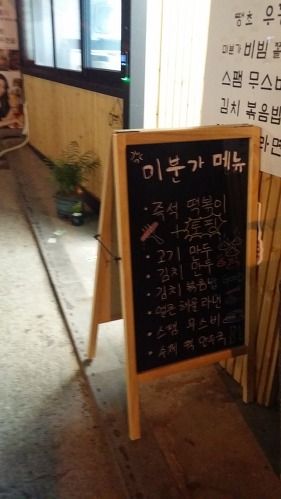 땡초 우
미분가 비빔
스팸 무스비
김치 볶음밥
라면
미분가 메뉴
즉석 떡볶이
+튀김
고기 만두
김치 만두
김치 볶음밥
얼큰 해물 라면
스팸 무스비
수제